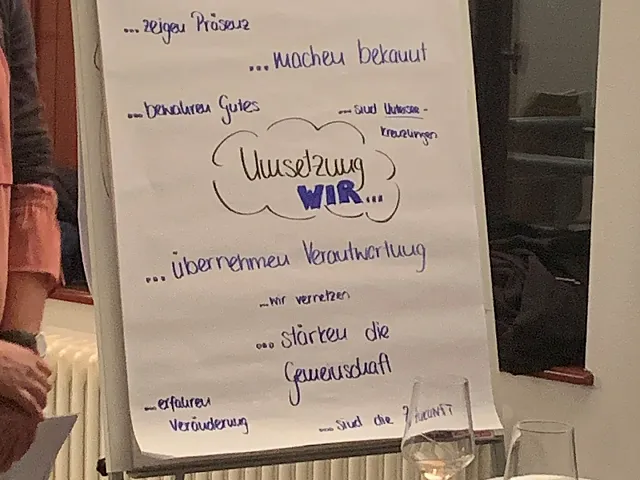 ...zeigen Präsenz
...machen bekannt
...bewahren Gutes
...sind Untersee-
Kreuzlingen
Umsetzung
WIR...
...übernehmen Verantwortung
...wir vernetzen
...stärken die
Gemeinschaft
...erfahren
Veränderung
...sind die ZUKUNFT